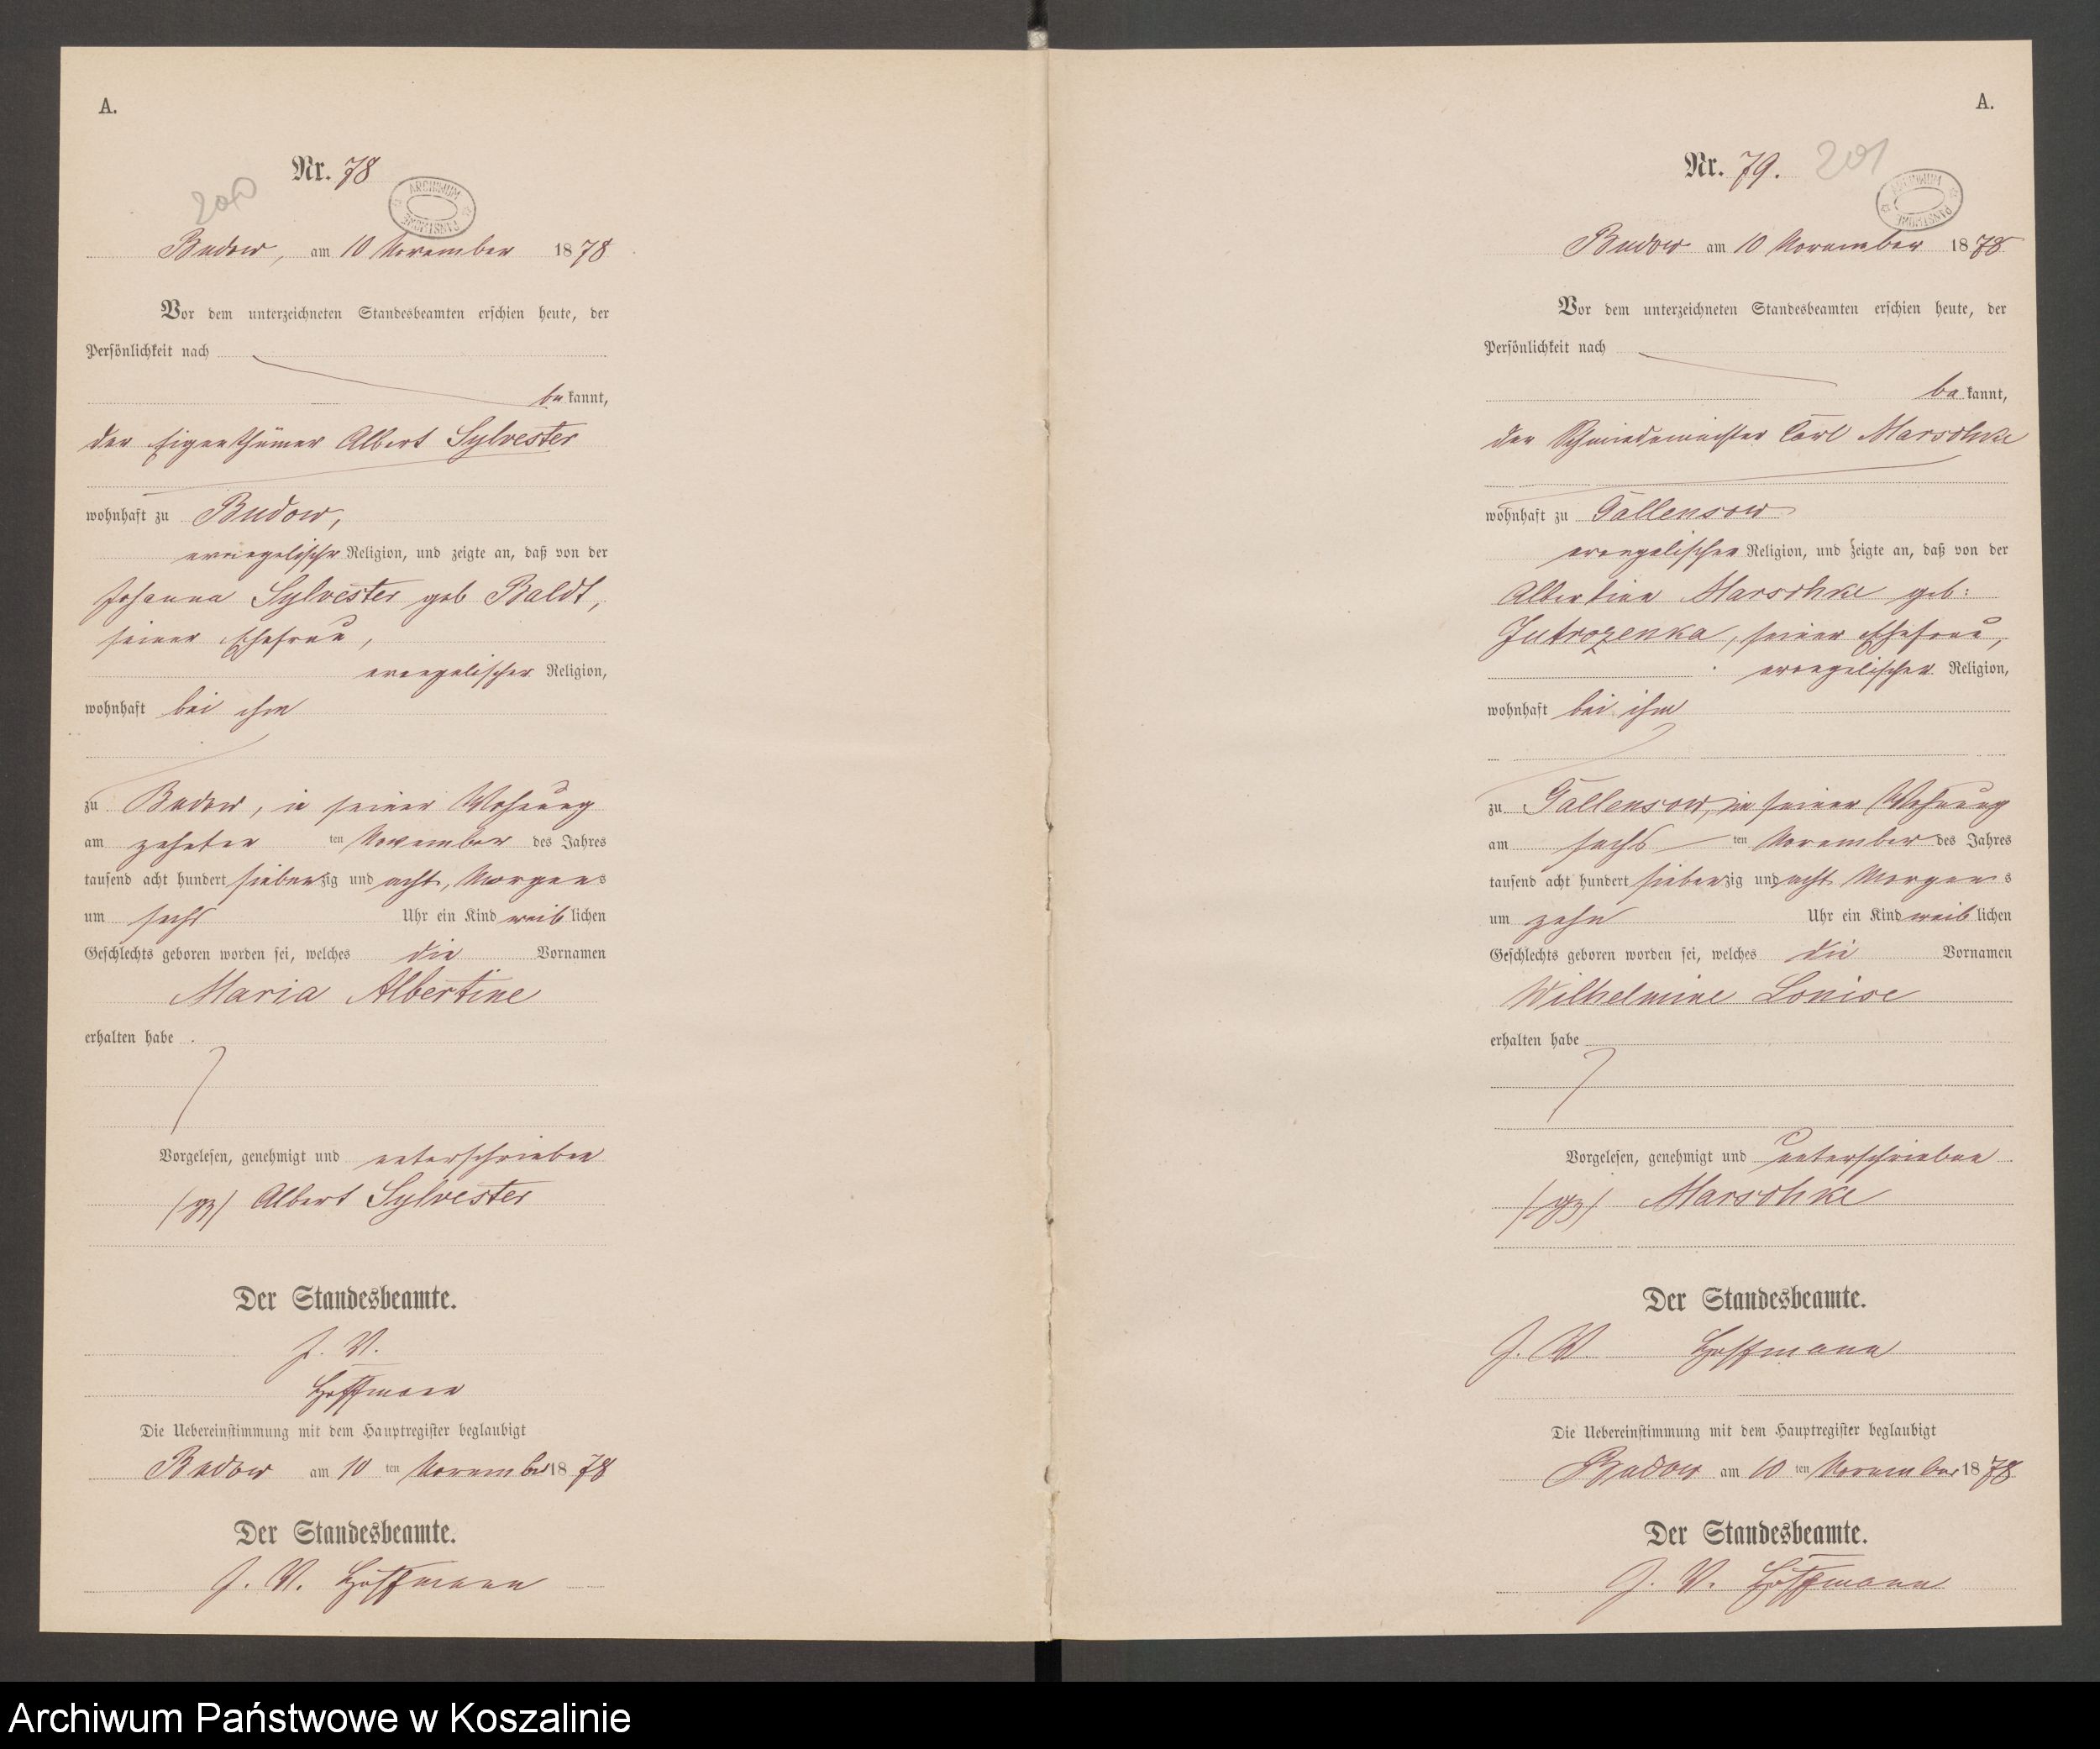 A.
Nr. 78
200
ARCHIWUM PAŃSTWOWE
Budow, am 10 November 1878
Vor dem unterzeichneten Standesbeamten erschien heute, der
Persönlichkeit nach
bekannt,
der Eigenthümer Albert Sylvester
wohnhaft zu Budow,
evangelischer Religion, und zeigte an, daß von der
Johanna Sylvester geb Baldt,
seiner Ehefrau,
evangelischer Religion,
wohnhaft bei ihm
zu Budow, in seiner Wohnung
am zehnten ten November des Jahres
tausend acht hundert siebenzig und acht, Morgens
um sechs Uhr ein Kind weiblichen
Geschlechts geboren worden sei, welches die Vornamen
Maria Albertine
erhalten habe
Vorgelesen, genehmigt und unterschrieben
(gz) Albert Sylvester
Der Standesbeamte.
J. V.
Hoffmann
Die Uebereinstimmung mit dem Hauptregister beglaubigt
Budow am 10 ten November 1878
Der Standesbeamte.
J. V. Hoffmann
A.
Nr. 79.
201
ARCHIWUM PAŃSTWOWE
Budow am 10 November 1878
Vor dem unterzeichneten Standesbeamten erschien heute, der
Persönlichkeit nach
bekannt,
der Schmiedemeister Carl Marschke
wohnhaft zu Gallensow
evangelischer Religion, und zeigte an, daß von der
Albertine Marschke geb:
Jutrozenka, seiner Ehefrau,
evangelischer Religion,
wohnhaft bei ihm
zu Gallensow, in seiner Wohnung
am sechs ten November des Jahres
tausend acht hundert siebenzig und acht Morgens
um zehn Uhr ein Kind weiblichen
Geschlechts geboren worden sei, welches die Vornamen
Wilhelmine Louise
erhalten habe
Vorgelesen, genehmigt und unterschrieben
(gz) Marschke
Der Standesbeamte.
J. V. Hoffmann
Die Uebereinstimmung mit dem Hauptregister beglaubigt
Budow am 10 ten November 1878
Der Standesbeamte.
J. V. Hoffmann
Archiwum Państwowe w Koszalinie